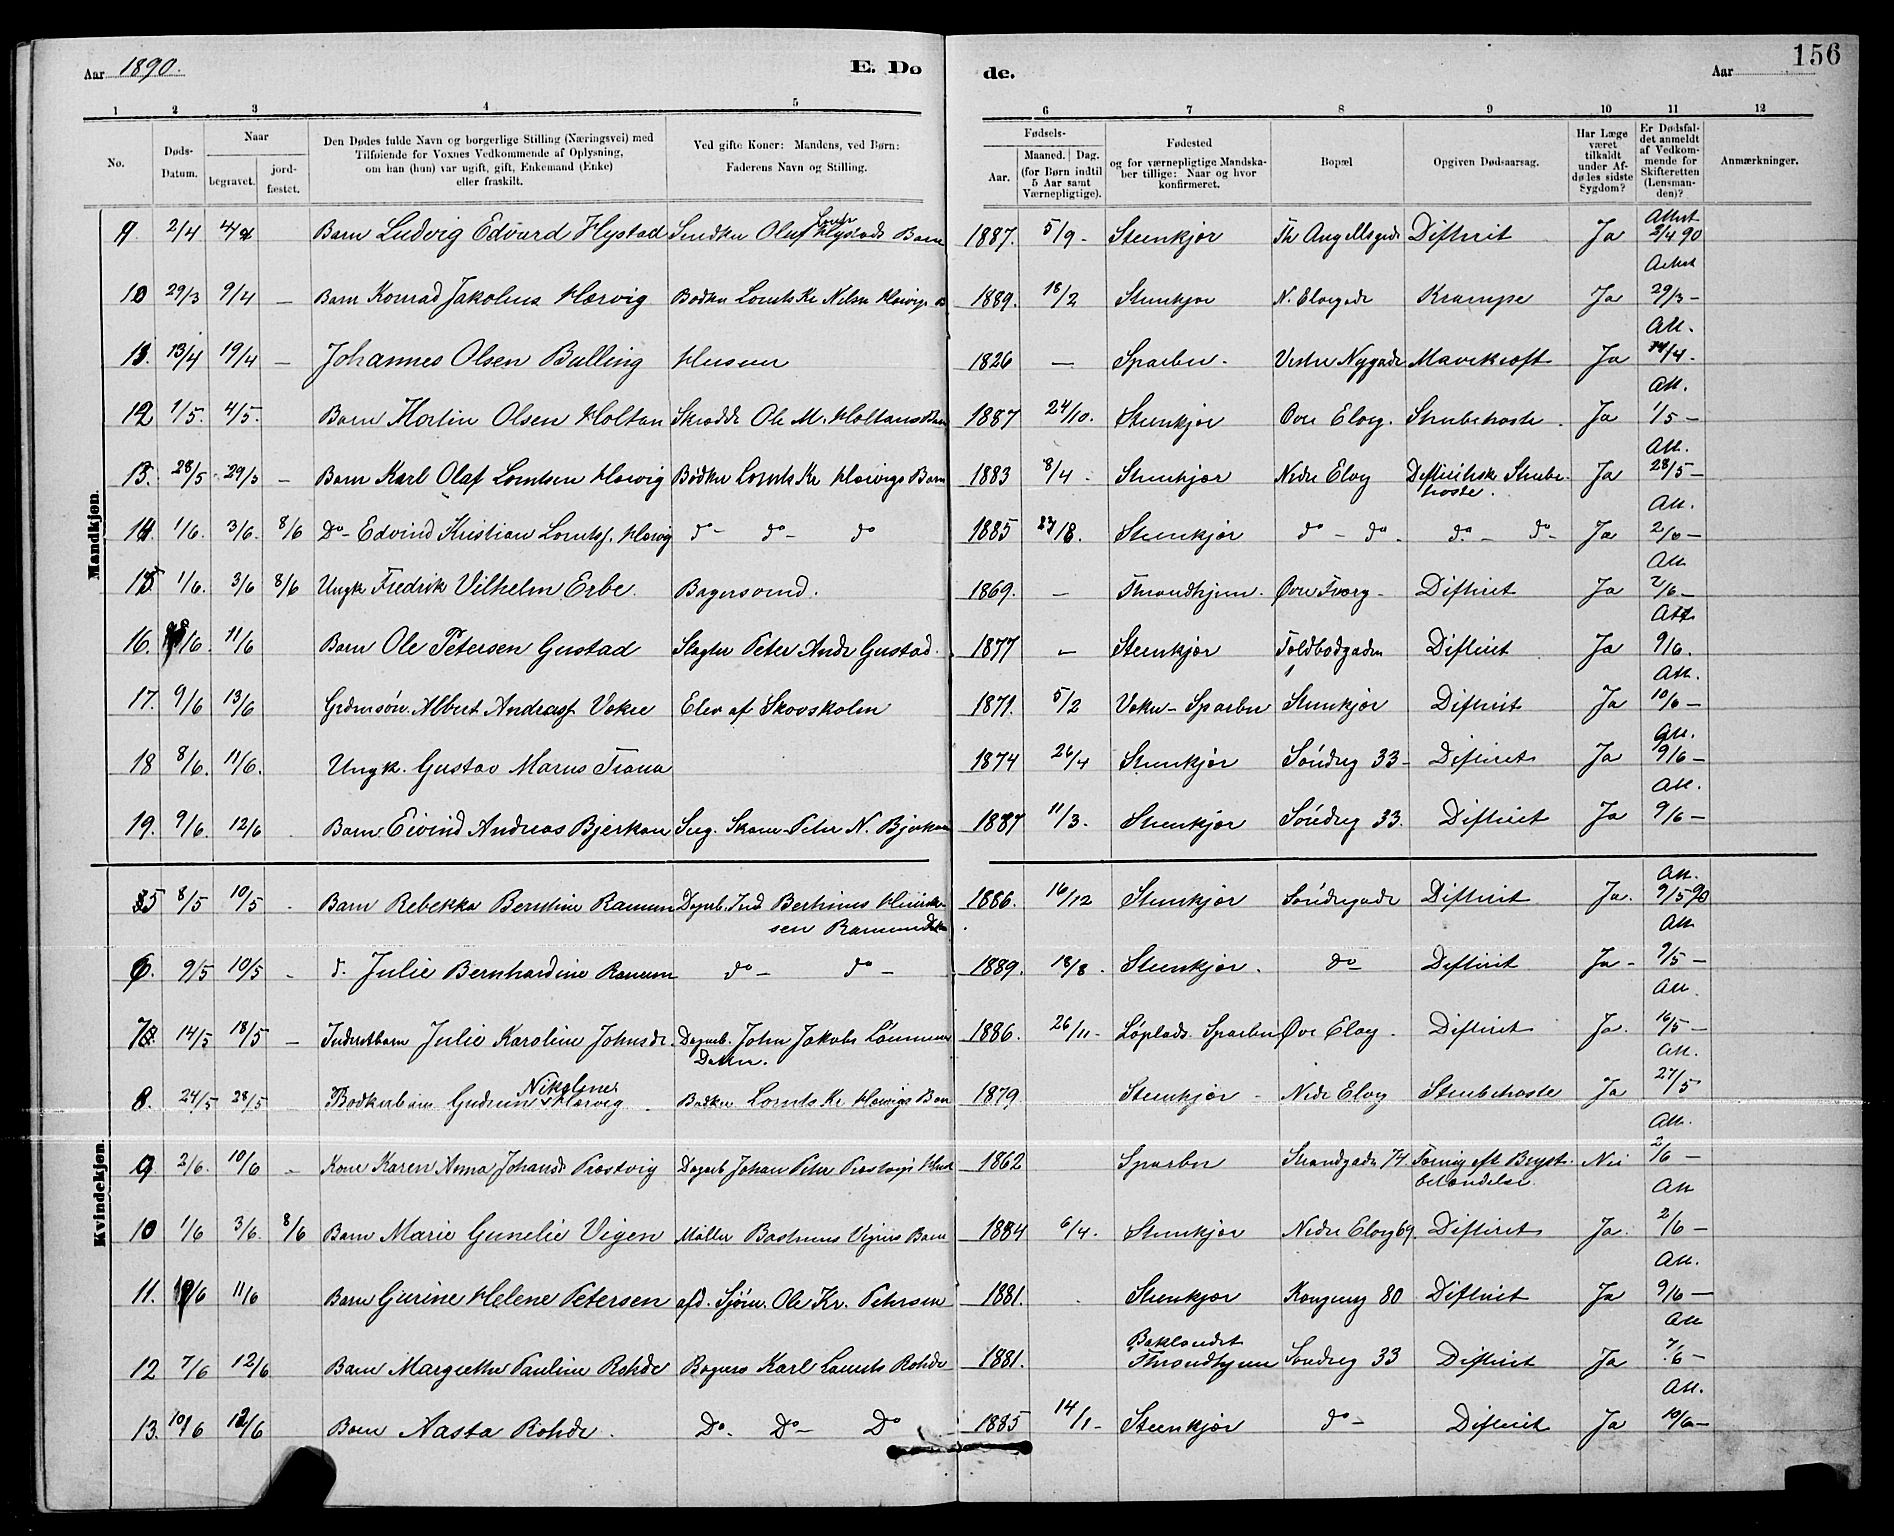 Aar 1890.
E. Dø
de.
Aar
156
1 2 3 4 5 6 7 8 9 10 11 12
No.
Døds-Datum.
Naar
begravet.
jord-fæstet.
Den Dødes fulde Navn og borgerlige Stilling (Næringsvei) med
Tilføiende for Voxnes Vedkommende af Oplysning,
om han (hun) var ugift, gift, Enkemand (Enke)
eller fraskilt.
Ved gifte Koner: Mandens, ved Børn:
Faderens Navn og Stilling.
Fødsels-
Aar.
Maaned. Dag.
(for Børn indtil
5 Aar samt
Værnepligtige).
Fødested
og for værnepligtige Mandska-
ber tillige: Naar og hvor
konfirmeret.
Bopæl
Opgiven Dødsaarsag.
Har Læge
været
tilkaldt
under Af-
dødes sidste
Sygdom?
Er Dødsfal-
det anmeldt
af Vedkom-
mende for
Skifteretten
(Lensman-
den)?
Anmærkninger.
Mandkjøn.
9 2/4 Barn Ludvig Edvard Hystad Smedku Oluf Hystads Barn 1887. 5/9 - Steenkjør Th Angellsgde Difterit Ja Attest 2/4 90
10 29/3 9/4 - Barn Konrad Jakobius Hørvig Bødker Lornts Kr Nelsen 1889. 18/2 Stenkjør N. Elvegade Krampe Ja Attest 29/3 -
11. 13/4 19/4 - Johannes Olsen Balling Husmn 1826 - Sparbu. Vestre Nygade Mavekræft Ja Att. 14/4 -
12 1/5. 4/5. Barn Martin Olsen Holtan Skrædder Ole M. Holtans Barn 1887 24/10. Steenkjør Øvre Elvg. Strubehoste. Ja Att. 1/5 -
13. 28/5 29/5 - Barn Karl Olaf Lorntsen Hørvig Bødker Lornts Kr Hørvigs Barn 1883 8/4 - Steenkjør Nedre Elvg Difteritisk Strube-
hoste. Ja Att. 28/5 -
14 1/6. 3/6. 8/6 Do - Edvind Kristian Lorntss. Hørvig do - do - do 1885 27/8. Steenkjør do - do - do - do - Ja Att. 2/6 -
15 1/6. 3/6 8/6 Ungk Fredrik Vilhelm Erbe. Bagersvend. 1869. - Throndhjem. Øvre Tværg - Difterit Ja Att 2/6 -
16. 8/6 11/6 Barn Ole Petersen Gustad Slagter Peter Andr Gustad. 1877 - Steenkjør Toldbodgaden Difterit Ja Att 9/6.
17. 9/6 13/6 Grdmsøn. Albert Andreass Vekre Elev af Skovskolen 1871. 5/2 - Sparbu Steenkjør Difterit Ja Att. 10/6 -
18 8/6. 11/6. Ungk. Gustav Marius Trana 1874 26/4 Steenkjør Søndreg 33 - Difterit Ja Att. 9/6 -
19. 9/6. 12/6 Barn Eivind Andreas Bjerkan Peter N. Bjerkan 1887 11/3. Steenkjør Søndreg 33. Difterit Ja Att. 9/6 -
Kvindekjøn.
5 8/5 10/5 - Barn Rebekka Berntine Ramum Dagarb. Ind Bertinus Henrik-
sen 1886. 16/12 Steenkjør Søndregade Difterit Ja. Att. 9/5 90
6. 9/5 10/5 - d. Julie Bernhardine Ramum do - do - 1889. 18/8. Steenkjør. do Difterit Ja - Att 9/5 -
7 14/5 18/5 - Inderstbarn Julie Karoline Johnsdr. Dagarb. John Jakobs
Datter. 1886. 26/11 - Løplads. Sparbu Øvre Elvg. Difterit Ja. Att. 16/5 -
8. 24/5 28/5 Bødkerbarn Gudrun Nikoline Hørvig. Bødker Lornts Kr Hørvigs Barn 1879 Steenkjør - Nedre Elvg Strubehoste Ja Att. 27/5
9 2/6. 10/6 - Kone Karen Anna Johansdr Prøstvig Dagarb Johan Peter 1862 Sparbu Strandgaden 74 Tæring eft Bryst-
betændelse. Nei Att. 2/6 -
10 1/6 3/6. 8/6 Barn Marie Gunelie Vigen Møller Bastinus Vigens Barn 1884 6/4. Steenkjør Nedre Elvg 69. Difterit Ja. Att 2/6 -
11. 11/6 Barn Gurine Helene Petersen afd. Sjøm. Ole Kr. Petersen 1881. Steenkjør Kongensg 80 Difterit Ja Att. 9/6 -
12 7/6 12/6 Barn Margrethe Pauline Rohde Bagers Karl Laurits Rohde 1881. Baklandet
Throndhjem Søndreg 33 Difterit Ja Att 7/6 -
13. 10/6 12/6 Barn Aasta Rohde. Do. Do - Do 1885 14/1 - Steenkjør do - Difterit Ja Att. 10/6 -